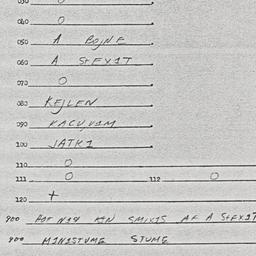 030 0
040 0
050 A BOJNE
060 A STEXIT
070 0
080 KEJLEN
090 VACUVAM
100 JATKI
110 0
111 0 112 0
120 +
900 SMIXIS AF A STEXIT
900 MINISTUME STUME